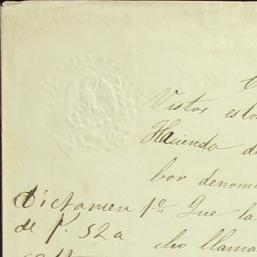 Vistos esto
Hacienda de
bor denomi
Dictamen pº. Que la
de f. 52a
cho llama